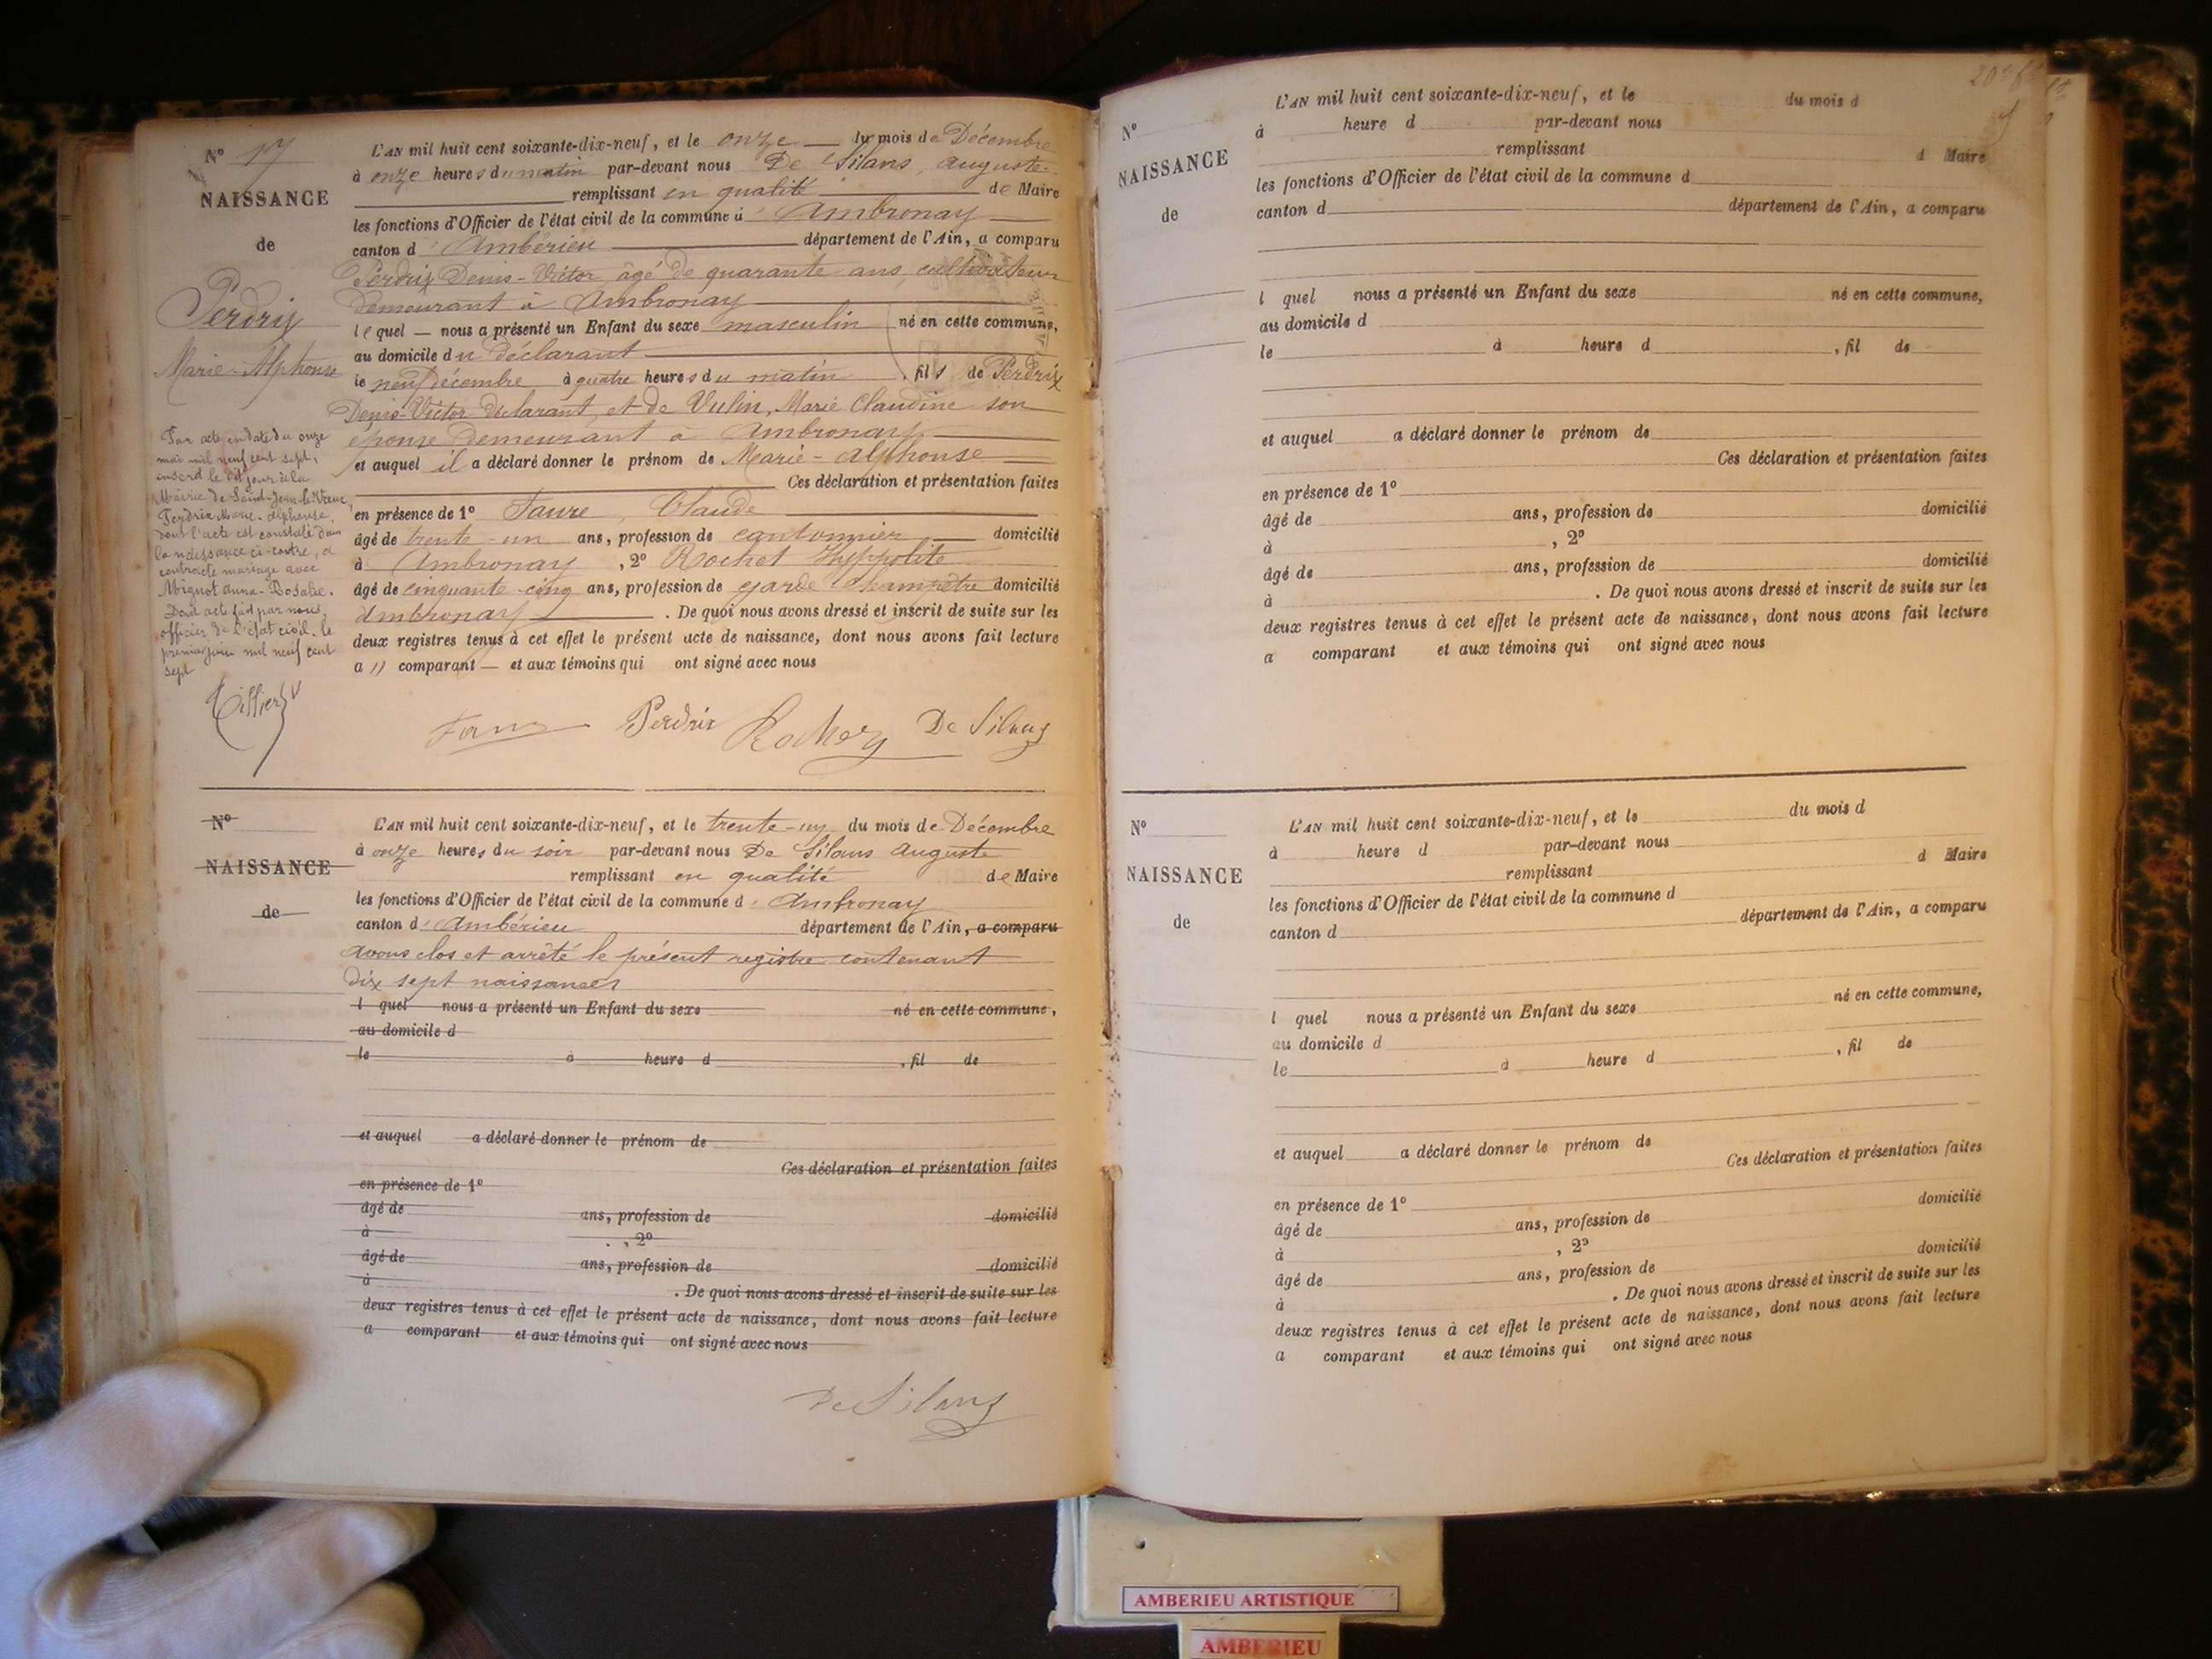 N° 17
NAISSANCE
de
Perdrix
Marie-Alphonse
Par acte en date du onze
mai mil neuf cent sept,
inscrit le dit jour à la
Mairie de Saint-Jean-le-Vieux,
Perdrix Marie-Alphonse,
dont l'acte est constaté dans
la naissance ci-contre, a
contracté mariage avec
Mignot Anna-Rosalie.
Dont acte fait par nous,
officier de l'état civil, le
premier juin mil neuf cent
sept
Tillier
L'AN mil huit cent soixante-dix-neuf, et le onze du mois de Décembre
à onze heures du matin par-devant nous De Silans, Auguste
remplissant en qualité de Maire
les fonctions d'Officier de l'état civil de la commune d'Ambronay
canton d'Ambérieu département de l'Ain, a comparu
Perdrix Denis-Victor âgé de quarante ans, cultivateur
demeurant à Ambronay
lequel nous a présenté un Enfant du sexe masculin né en cette commune,
au domicile du déclarant
le neuf Décembre à quatre heures du matin, fils de Perdrix
Denis-Victor déclarant, et de Vulin, Marie Claudine son
épouse demeurant à Ambronay
et auquel il a déclaré donner le prénom de Marie-Alphonse
Ces déclaration et présentation faites
en présence de 1° Faure, Claude
âgé de trente-un ans, profession de cantonnier domicilié
à Ambronay, 2° Rochet Hyppolite
âgé de cinquante-cinq ans, profession de garde champêtre domicilié
Ambronay. De quoi nous avons dressé et inscrit de suite sur les
deux registres tenus à cet effet le présent acte de naissance, dont nous avons fait lecture
a// comparant et aux témoins qui ont signé avec nous
Perdrix De Silans
N°
NAISSANCE
de
L'AN mil huit cent soixante-dix-neuf, et le trente-un du mois de Décembre
à onze heures du soir par-devant nous De Silans Auguste
remplissant en qualité de Maire
les fonctions d'Officier de l'état civil de la commune d'Ambronay
canton d'Ambérieu département de l'Ain, a comparu
avons clos et arrêté le présent registre contenant
dix sept naissances
l quel nous a présenté un Enfant du sexe né en cette commune,
au domicile d
le à heure d , fil de
et auquel a déclaré donner le prénom de
Ces déclaration et présentation faites
en présence de 1°
âgé de ans, profession de domicilié
à , 2°
âgé de ans, profession de domicilié
à . De quoi nous avons dressé et inscrit de suite sur les
deux registres tenus à cet effet le présent acte de naissance, dont nous avons fait lecture
a comparant et aux témoins qui ont signé avec nous
De Silans
N°
NAISSANCE
de
L'AN mil huit cent soixante-dix-neuf, et le du mois d
à heure d par-devant nous
remplissant d Maire
les fonctions d'Officier de l'état civil de la commune d
canton d département de l'Ain, a comparu
l quel nous a présenté un Enfant du sexe né en cette commune,
au domicile d
le à heure d , fil de
et auquel a déclaré donner le prénom de
Ces déclaration et présentation faites
en présence de 1°
âgé de ans, profession de domicilié
à , 2°
âgé de ans, profession de domicilié
à . De quoi nous avons dressé et inscrit de suite sur les
deux registres tenus à cet effet le présent acte de naissance, dont nous avons fait lecture
a comparant et aux témoins qui ont signé avec nous
N°
NAISSANCE
de
L'AN mil huit cent soixante-dix-neuf, et le du mois d
à heure d par-devant nous
remplissant d Maire
les fonctions d'Officier de l'état civil de la commune d
canton d département de l'Ain, a comparu
l quel nous a présenté un Enfant du sexe né en cette commune,
au domicile d
le à heure d , fil de
et auquel a déclaré donner le prénom de
Ces déclaration et présentation faites
en présence de 1°
âgé de ans, profession de domicilié
à , 2°
âgé de ans, profession de domicilié
à . De quoi nous avons dressé et inscrit de suite sur les
deux registres tenus à cet effet le présent acte de naissance, dont nous avons fait lecture
a comparant et aux témoins qui ont signé avec nous
AMBERIEU ARTISTIQUE
AMBERIEU